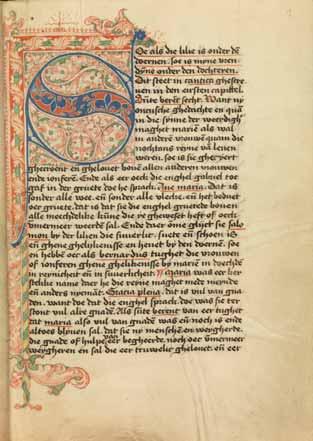 Soe als die lilie is onder de
doernen. Soe is myne vrien
dyne onder den dochteren.
Dit steet in cantica ghescre
uen in den eirsten capittel.
Sunte secht. Want ny
onlensche ghedachte en quā
in die synne der weerdigh
maghet marie als wal
in anderē vrouwen quam die
nochtans reyne wā leuen
weren. soe is sie gheeyert
gheroemt en ghelouet bouē allen anderen vrouwen
ende ionferē. Ende als eer oeck die enghel gabriel toe
gaf in der gruete doe he sprack. Aue maria. dat is
sonder alle wee. eñ sonder alle vleche. eñ het bediet
oec gruete. dat is dat sie die enghel gruetede bouen
alle menchelike kūne die ye gheweset heft of oeck
vmermeer weerdē sal. Ende daer ōme ghijct sie salo
mon by der lilien die suuerlic. suete eñ schoen is
en ghene ghelijckenisse en heuet by den doernē. Soe
en hebbē oec als bernardus tughet die vrouwen
of ionferen ghene ghelikenisse by mariē in doechdē
in reynicheit eñ in suuerlicheit. Maria was eer ker
stelike name daer he die reyne maghet mede meynde
eñ anders nyemāt. Gracia plena. dat is vul van gna
den. want doe dat die enghel sprack. doe was sie ter
stont vul alre gnadē. Als sūte van eer tughet
dat maria alsoe vul van gnadē was eñ noch is ende
altoes bliuen sal. dat sie nv menschē en
die gnade of hulpe van eer begheerde. noch oec vmermeer
weygheren en sal. die eer truwelic ghelouet. eñ eer